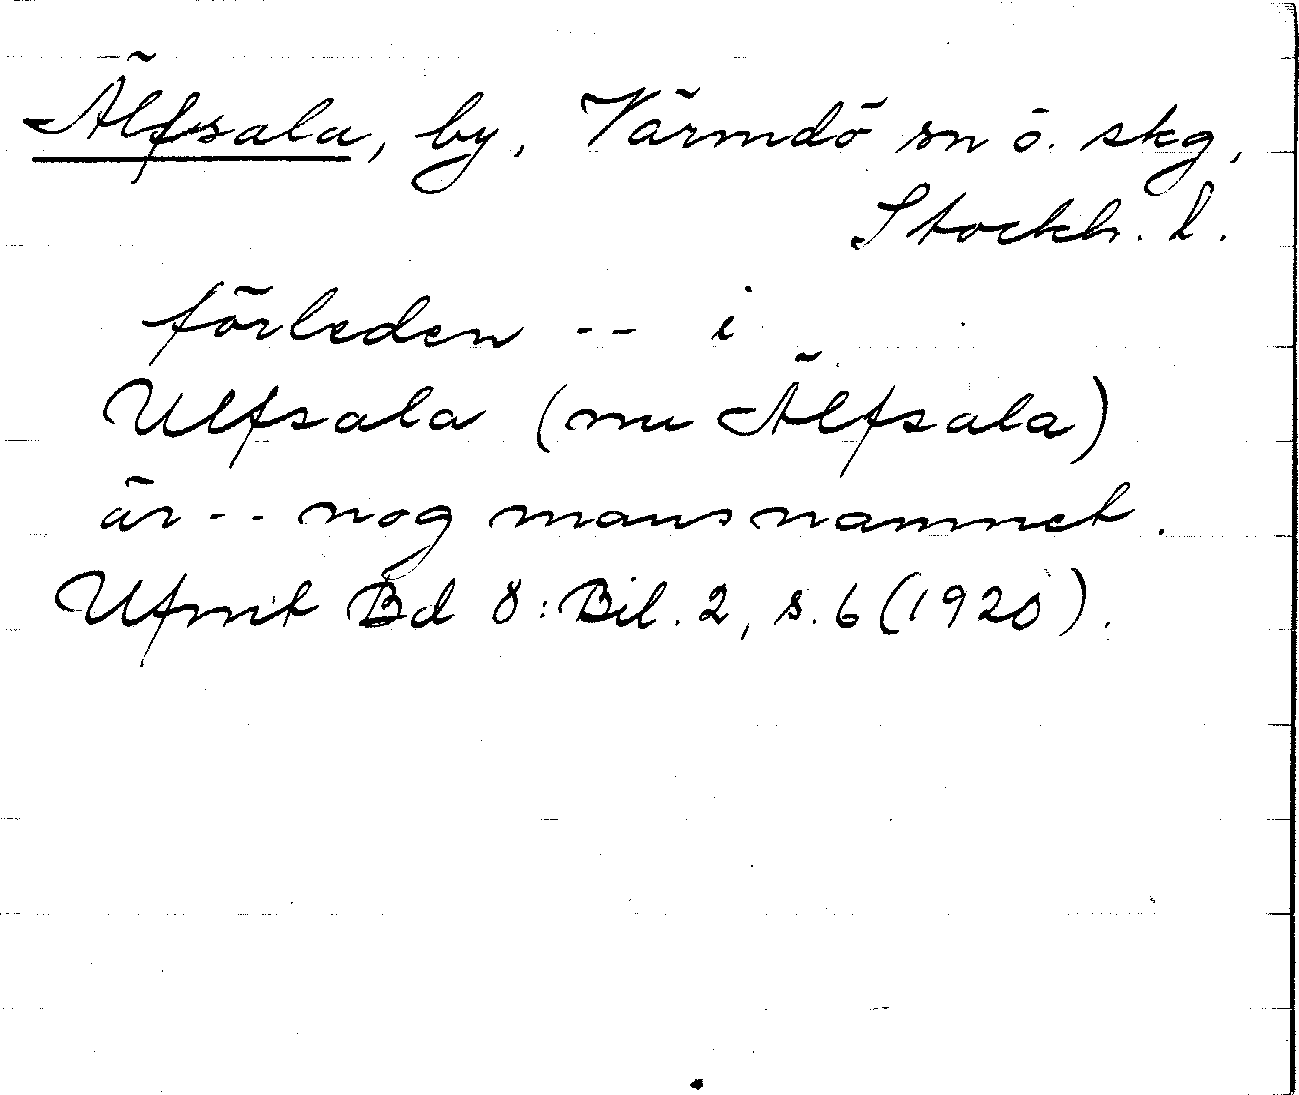 Älfsala, by, Värmdö sn ö. skg,
Stockh. l.
förleden -- i
Ulfsala (nu Älfsala)
är -- nog mansnamnet.
Ufmt Bd 8: Bil. 2, s. 6 (1920).